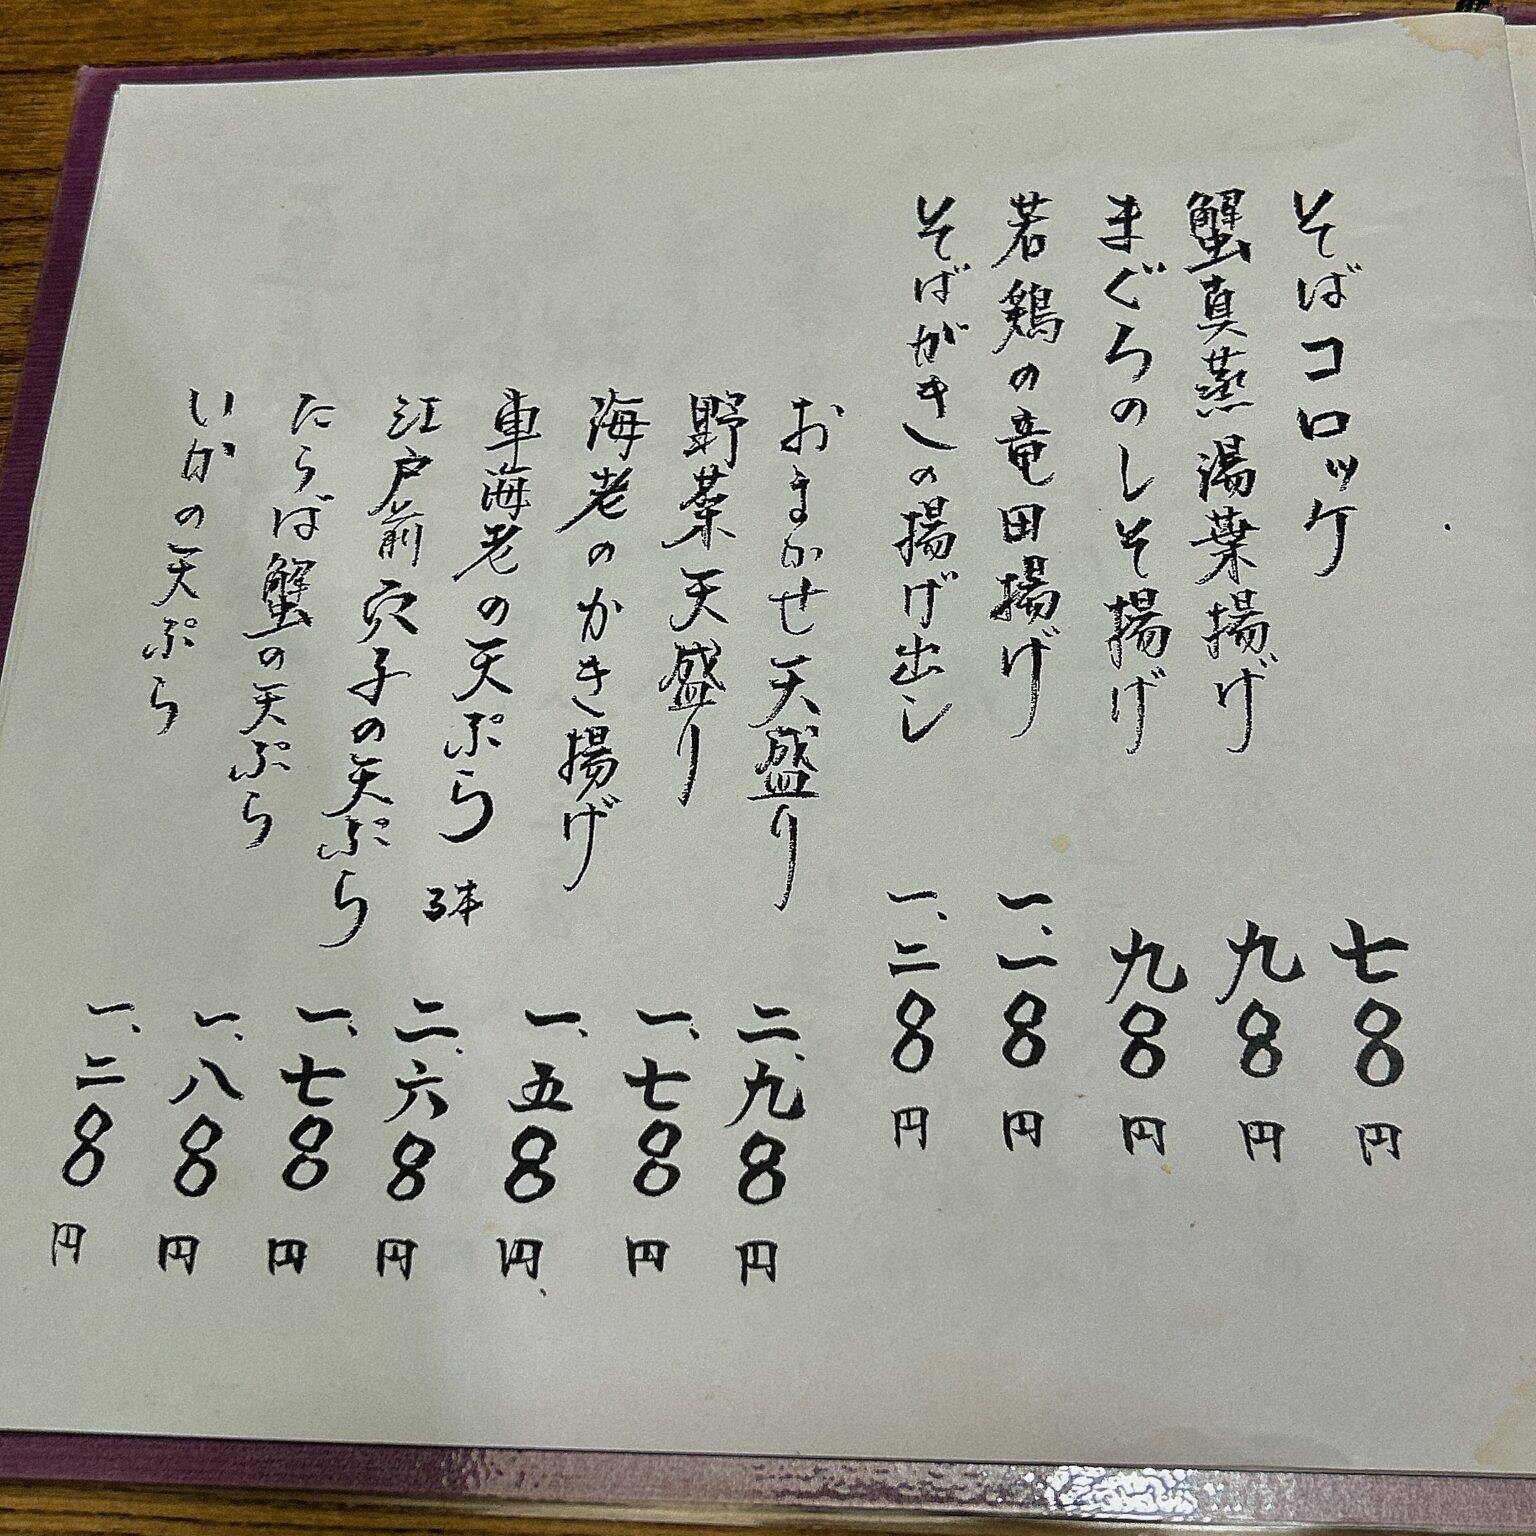 そばコロッケ 七〇〇円
蟹真蒸湯葉揚げ 九〇〇円
まぐろのしそ揚げ 九〇〇円
若鶏の竜田揚げ 一、一〇〇円
そばがきの揚げ出し 一、二〇〇円
おまかせ天盛り 二、九〇〇円
野菜天盛り 一、七〇〇円
海老のかき揚げ 一、五〇〇円
車海老の天ぷら 3本 二、六〇〇円
江戸前穴子の天ぷら 一、七〇〇円
たらば蟹の天ぷら 一、八〇〇円
いかの天ぷら 一、二〇〇円